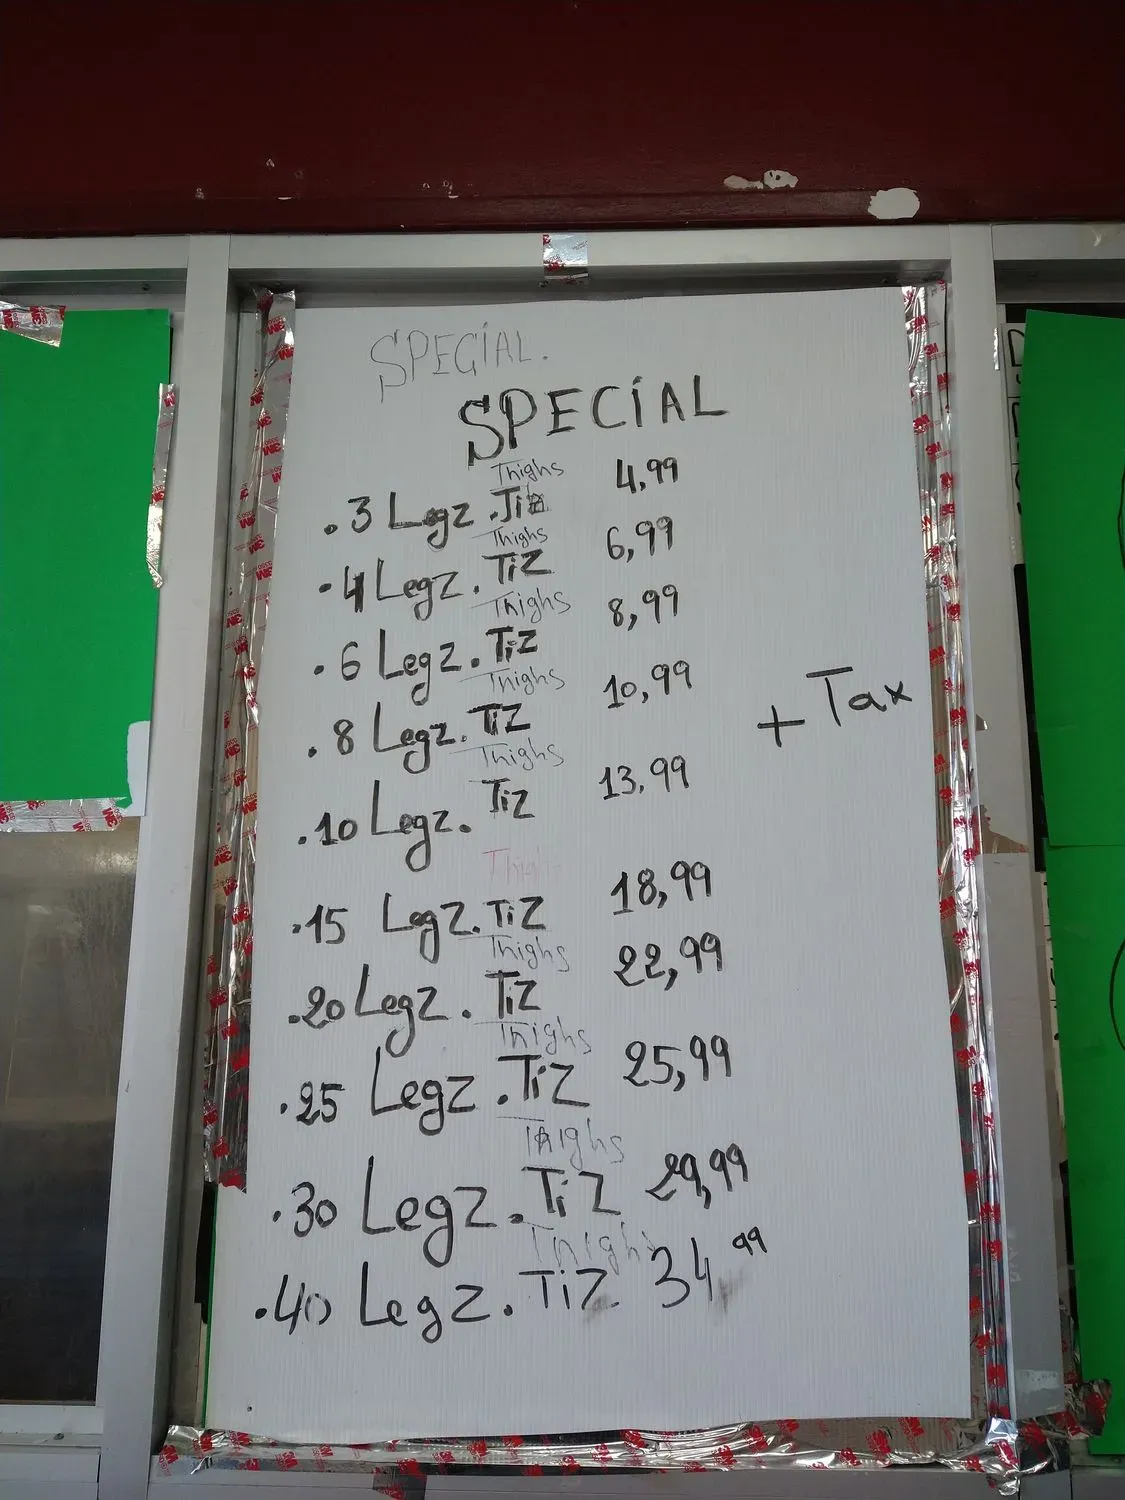 SPECiAL.
SPECiAL
Thighs
.3 Legz .Tiz 4,99
Thighs
.4 Legz. TiZ 6,99
Thighs
.6 Legz. TiZ 8,99
Thighs
.8 Legz. TiZ 10,99
Thighs
+ Tax
.10 Legz. TiZ 13,99
Thighs
.15 Legz. TiZ 18,99
Thighs
.20 Legz. TiZ 22,99
Thighs
.25 Legz .TiZ 25,99
Thighs
.30 Legz. TiZ 29,99
Thighs
.40 Legz. TiZ 34 99
3M